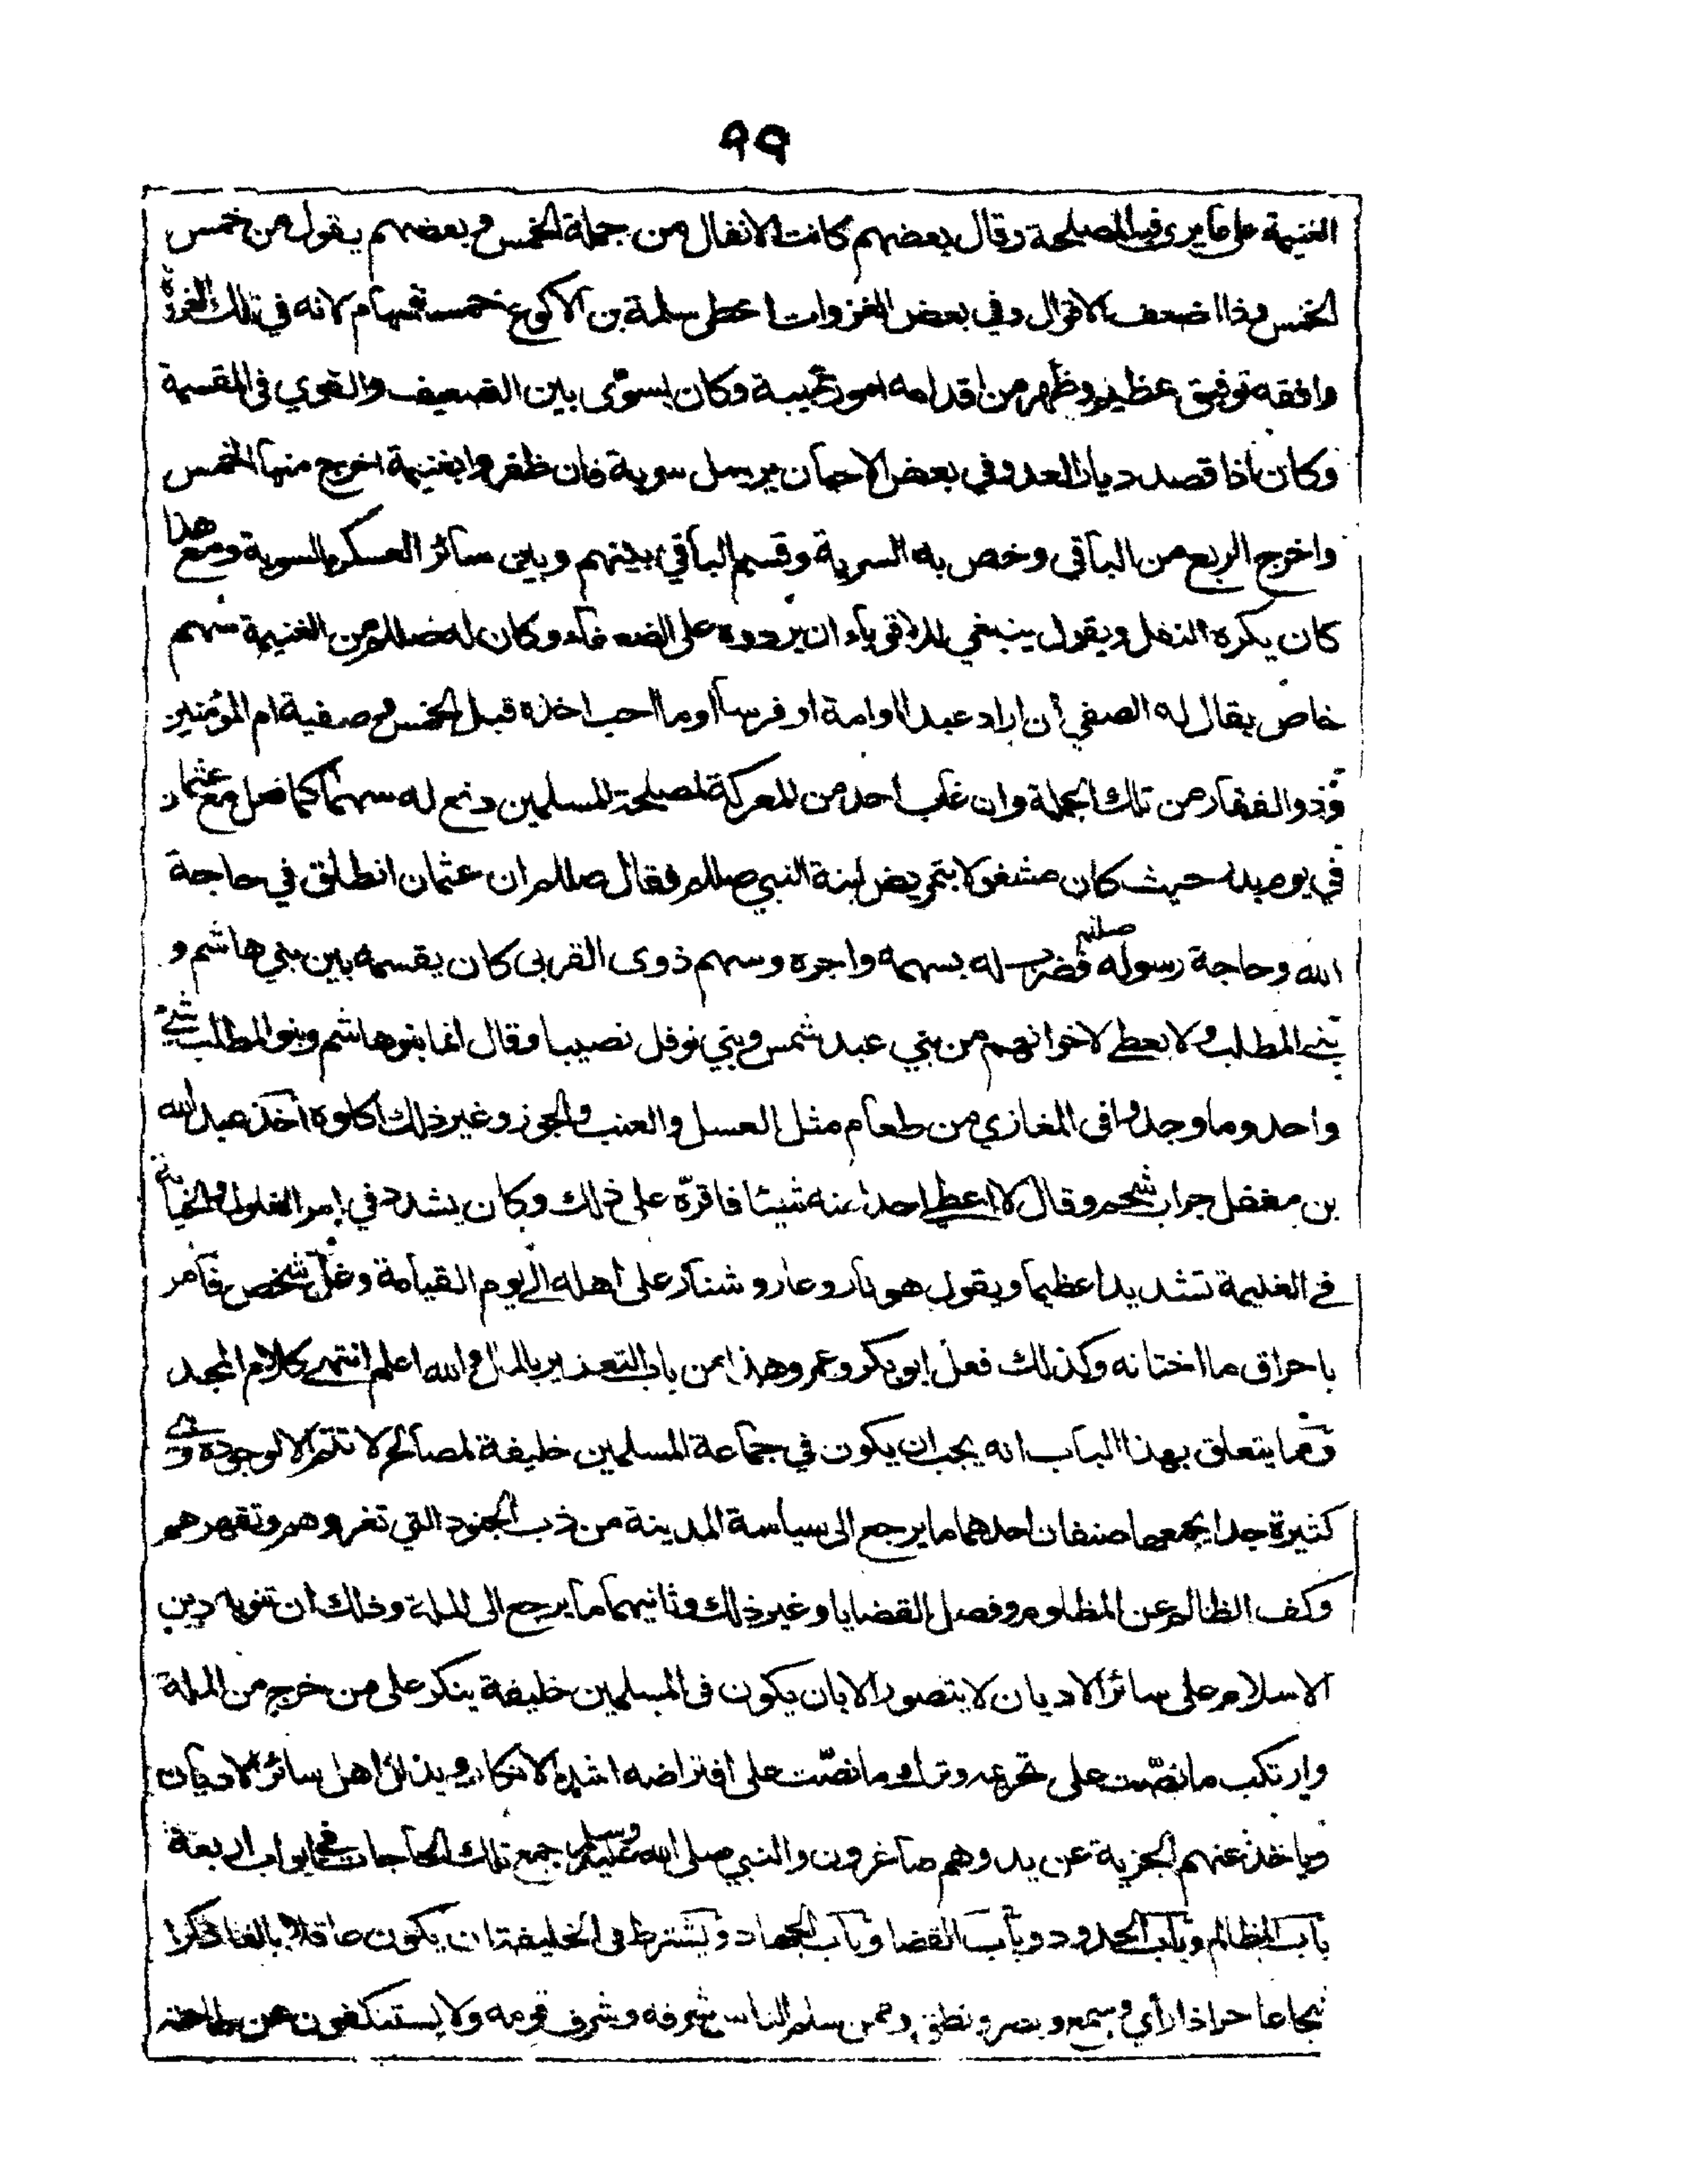 ٩٩
الغنيمة على ما يرى فيه المصلحة وقال بعضهم كانت الانفال من جملة الخمس وبعضهم يقول من خمس
الخمس وذا اضعف الاقوال وفي بعض الغزوات اعطى سلمة بن الاكوع خمسة سهام لانه في تلك الغزوة
وافقه توفيق عظيم وظهر من اقدامه امور عجيبة وكان يسوّى بين الضعيف والقوي فى القسمة
وكان اذا قصد ديار العدو في بعض الاحيان يرسل سرية فان ظفروا بغنيمة اخرج منها الخمس
واخرج الربع من الباقى وخص به السرية وقسم الباقي بينهم وبين سائر العسكر بالسوية ومع هذا
كان يكره النفل ويقول ينبغي للاقوياء ان يردوه على الضعفاء وكان له صللم من الغنيمة سهم
خاص يقال له الصفي ان اراد عبدا او امة او فرسا او ما احب اخذه قبل الخمس وصفية ام المؤمنين
وذو الفقار من تلك الجملة وان غاب احد من المعركة لمصلحة المسلمين دفع له سهما كما فعل مع عثمان
في يوم بدر حيث كان مشغولا بتمريض ابنة النبي صللم فقال صللم ان عثمان انطلق في حاجة
الله وحاجة رسوله صللم فضرب له بسهمه واجره وسهم ذوى القربى كان يقسمه بين بني هاشم و
بني المطلب ولا يعطي لاخوانهم من بني عبد شمس وبني نوفل نصيبا وقال انما بنو هاشم وبنو المطلب شيء
واحد وما وجدوا فى المغازي من طعام مثل العسل والعنب والجوز وغير ذلك اكلوه اخذ عبد الله
بن مغفل جراب شحم وقال لا اعطي احدا عنه شيئا فاقرّه على ذلك وكان يشدد في امر الغلول والخيانة
في الغنيمة تشديدا عظيما ويقول هو نار وعار وشنار على اهله الى يوم القيامة وغل شخص فامر
باحراق ما اختانه وكذلك فعل ابو بكر وعمر وهذا من باب التعزير بالمال والله اعلم انتهى كلام المجد
ومما يتعلق بهذا الباب انه يجب ان يكون في جماعة المسلمين خليفة لمصالح لا تتم الا بوجوده وهي
كثيرة جدا يجمعها صنفان احدهما ما يرجع الى سياسة المدينة من ذب الجنود التي تغزوهم وتقهرهم
وكف الظالم عن المظلوم وفصل القضايا وغير ذلك وثانيهما ما يرجع الى الملة وذلك ان تنويه دين
الاسلام على سائر الاديان لا يتصور الا بان يكون فى المسلمين خليفة ينكر على من خرج من الملة
وارتكب ما نصّت على تحريمه وترك ما نصّت على افتراضه اشد الانكار ويذلل اهل سائر الاديان
وياخذ عنهم الجزية عن يد وهم صاغرون والنبي صلى الله عليه وسلم جمع تلك الحاجات في ابواب اربعة
باب المظالم وباب الحدود وباب القضا وباب الجهاد ويشترط فى الخليفة ان يكون عاقلا بالغا ذكرا
شجاعا حرا ذا رأي وسمع وبصر ونطق وممن سلم الناس شرفه وشرف قومه ولا يستنكفون عن طاعته